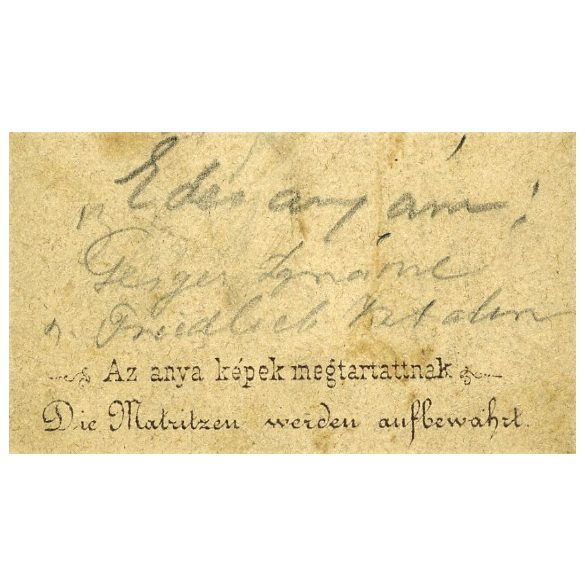 Édes anyám!
Geiger Ignácné
n. Friedlieb Katalin
Az anya képek megtartattnak
Die Matritzen werden aufbewahrt.